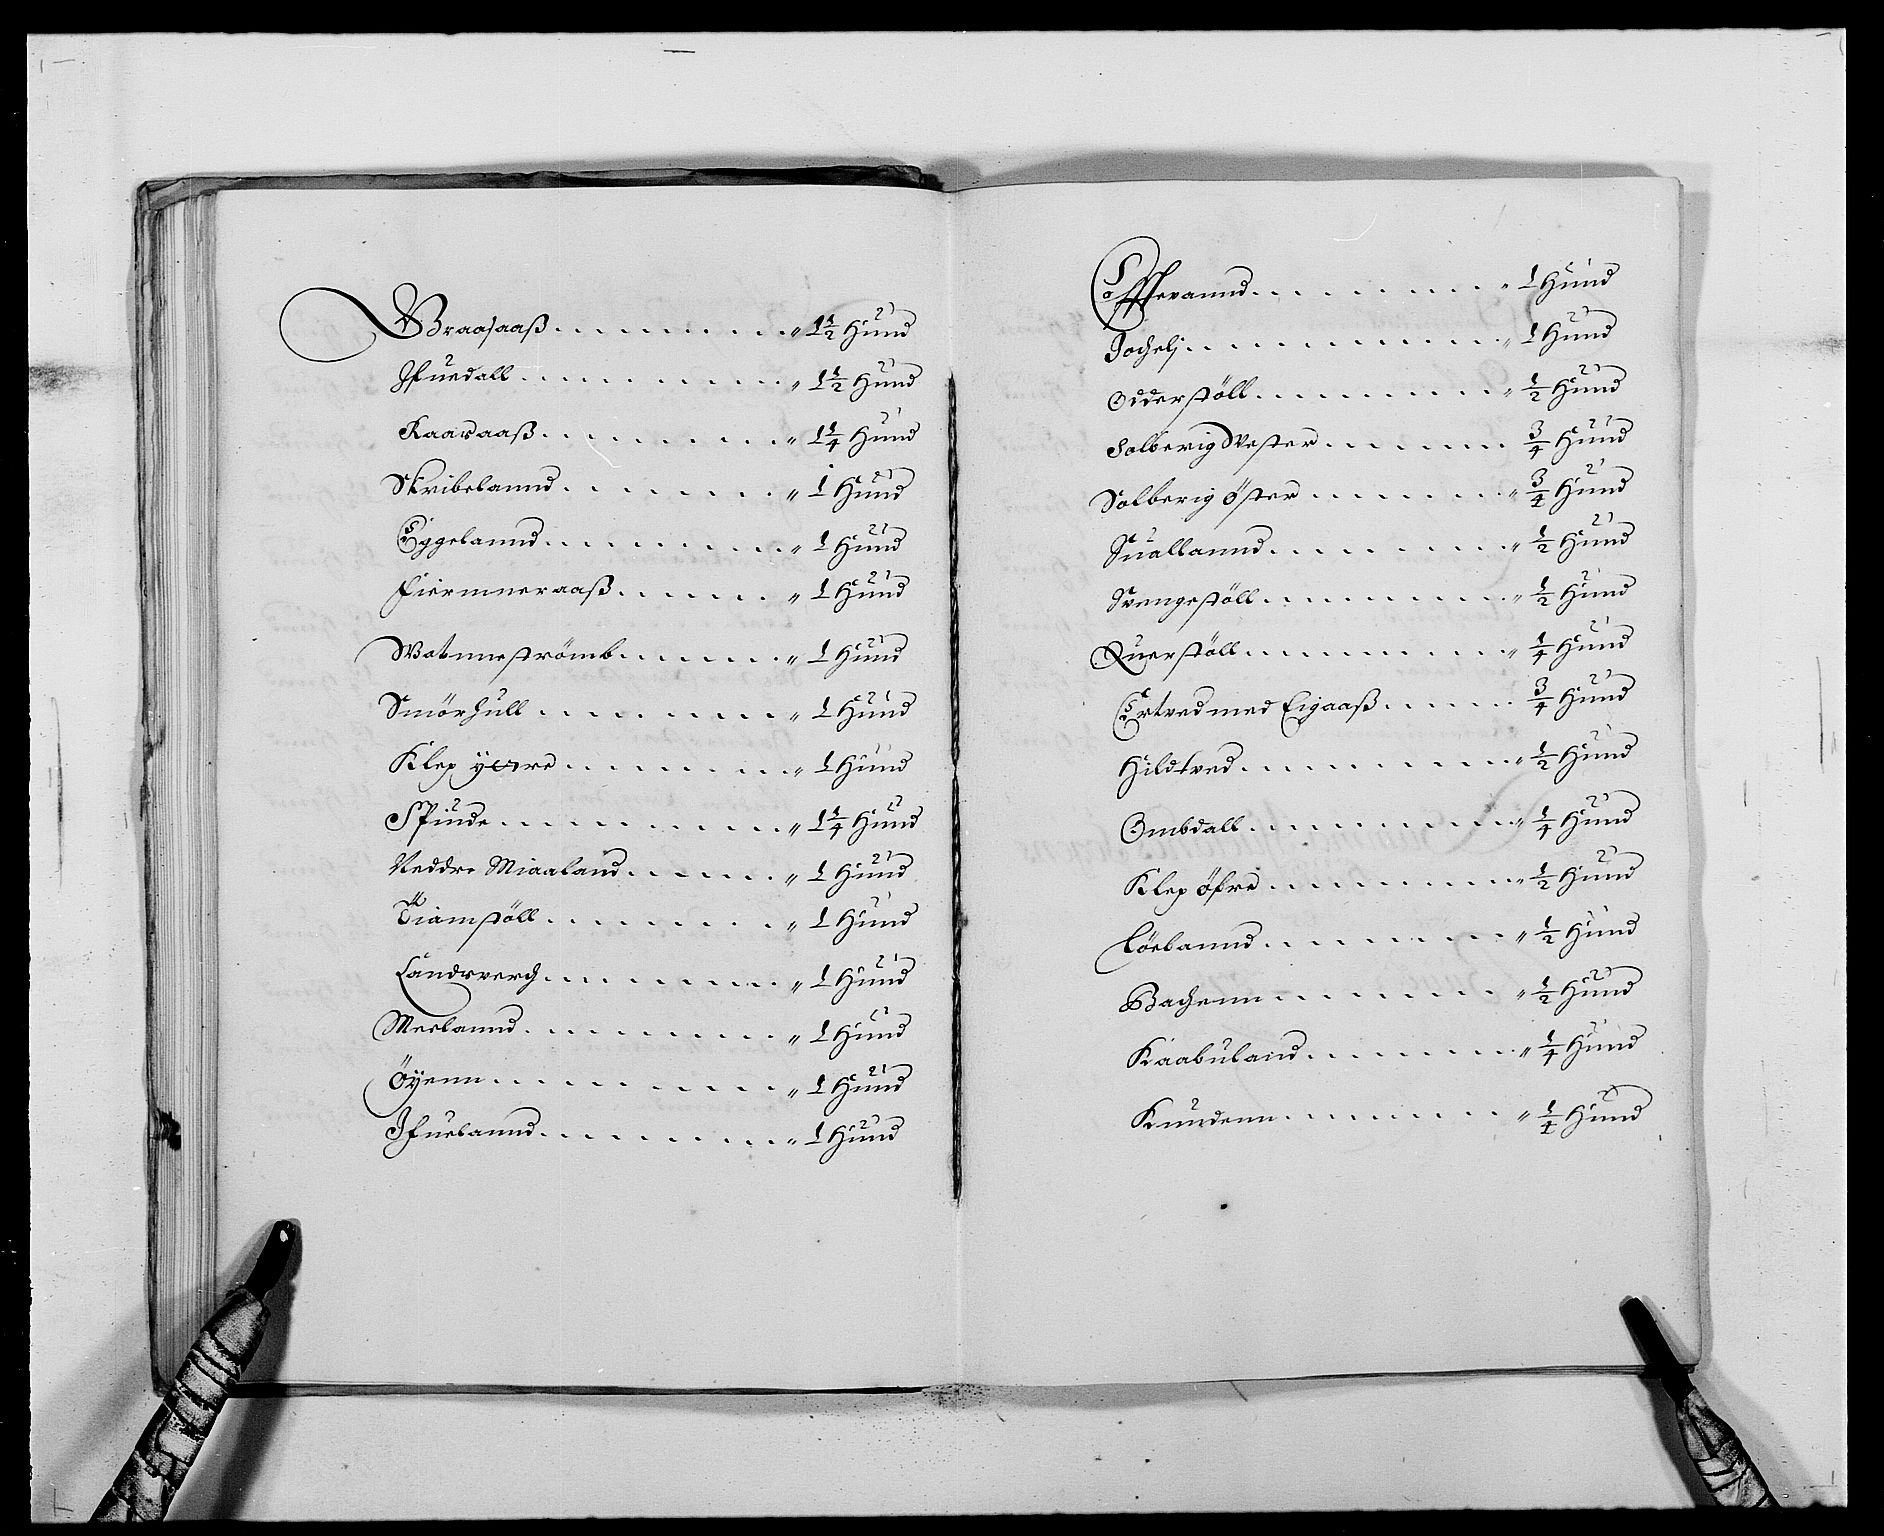 Braasaaß . . . . . . . . . „ 1 1/2 Hund
Ifuedall . . . . . . . . . . „ 1 1/2 Hund
Kaaraaß . . . . . . . . . „ 1 1/4 Hund
Skribeland . . . . . . . . „ 1 Hund
Eggelannd . . . . . . . . „ 1 Hund
Fiermneraaß . . . . . . „ 1 Hund
Watnneströmb . . . . . . „ 1 Hund
Smörhull . . . . . . . . „ 1 Hund
Klep ytre . . . . . . . . „ 1 Hund
Spinde . . . . . . . . . . „ 1 1/4 Hund
Neddre Miaaland . . . . . „ 1 Hund
Tiamstöll . . . . . . . . „ 1 Hund
Landverch . . . . . . . . „ 1 Hund
Meelannd . . . . . . . . „ 1 Hund
Öÿenn . . . . . . . . . . „ 1 Hund
Ifuelannd . . . . . . . . „ 1 Hund
. . . . . . . . „ 1 Hund
Jochelj . . . . . . . . . . „ 1 Hund
Odderstöll . . . . . . . . „ 1/2 Hund
Solberig Wester . . . . . . 3/4 Hund
Solberig Öster . . . . . . „ 3/4 Hund
Suallannd . . . . . . . . „ 1/2 Hund
Svengestöll . . . . . . . . „ 1/2 Hund
Querstöll . . . . . . . . „ 1/4 Hund
Ertved med Eigaaß . . . . . 3/4 Hund
Hildtved . . . . . . . . „ 1/2 Hund
Ombdall . . . . . . . . „ 1/4 Hund
Klep öfre . . . . . . . . „ 1/2 Hund
Löelannd . . . . . . . . „ 1/2 Hund
Bachenn . . . . . . . . „ 1/2 Hund
Kaabuland . . . . . . . . „ 1/4 Hund
Kundenn . . . . . . . . „ 1/4 Hund